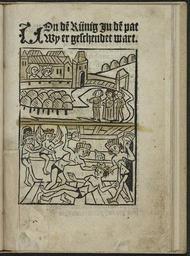 Von dē Künig Jn dē pat
Wy er geschendet wart.